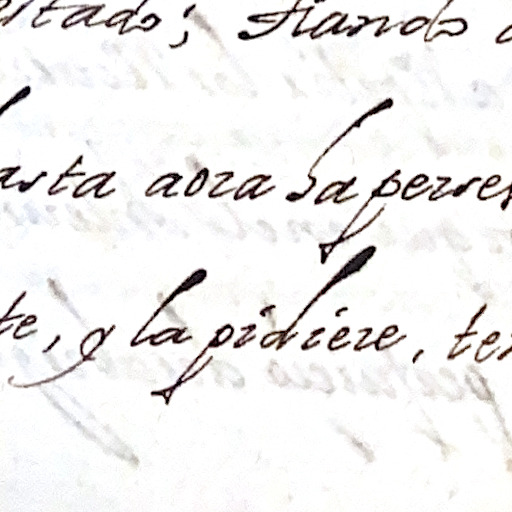 estado; fiando
asta aora ha perse
te, y la pidiere, te